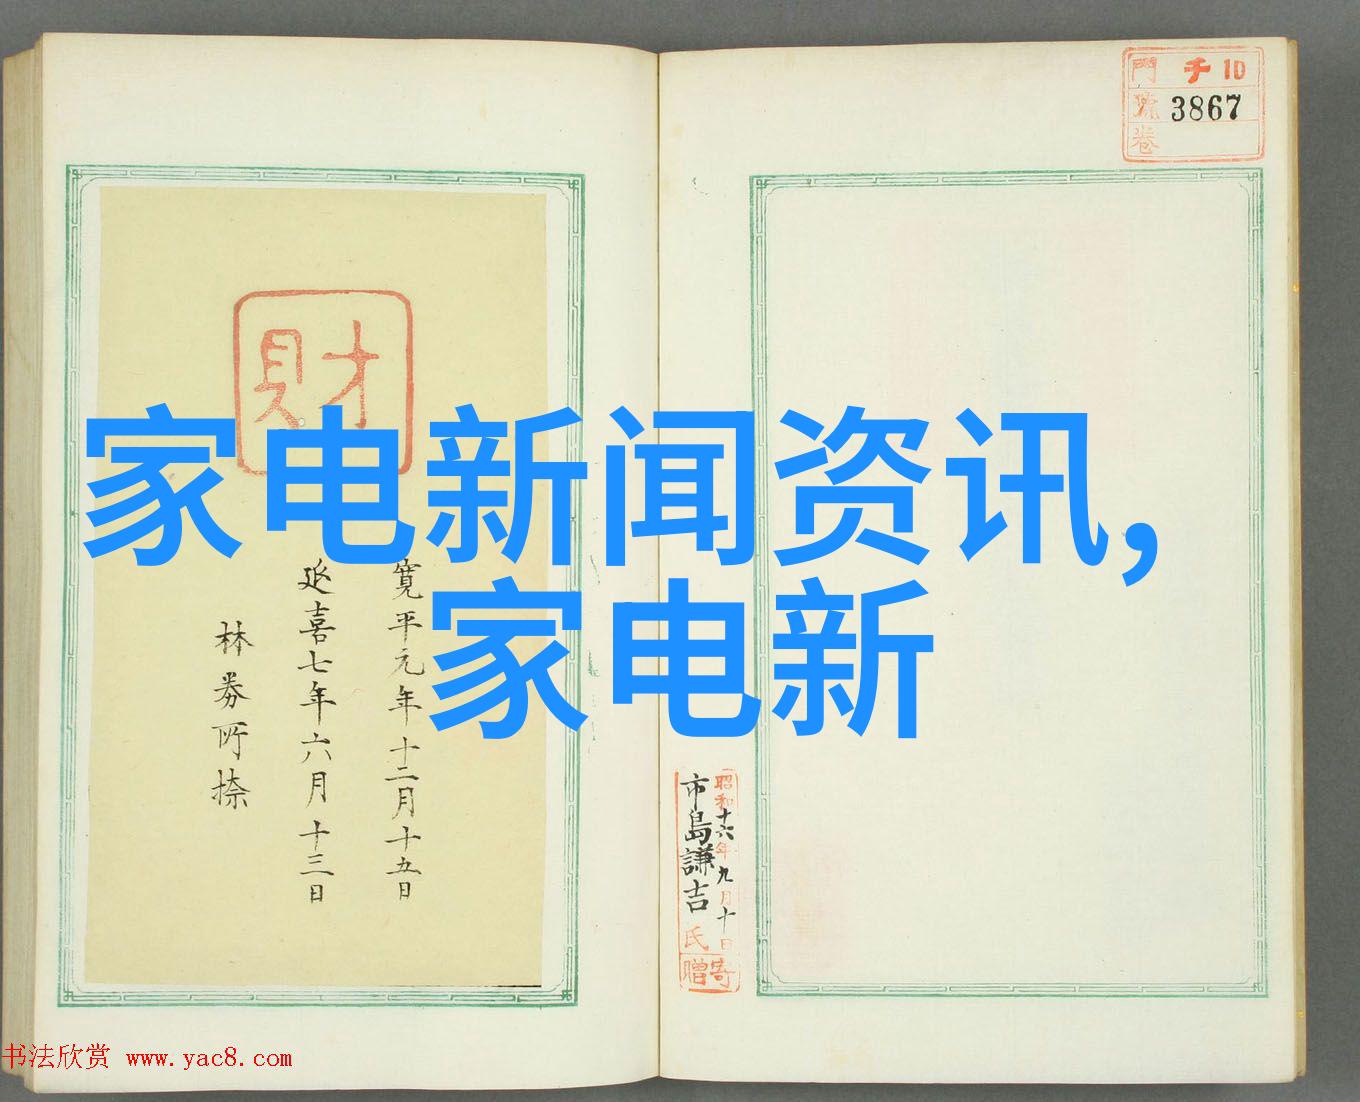 門 チ 10
號 3867
卷
財
家电新闻资讯,
家电新
寛平元年十二月十五日
延喜七年六月十三日
林券所捺
昭和十六年九月十日
市島謙吉氏
寄贈
书法欣赏 www.yac8.com